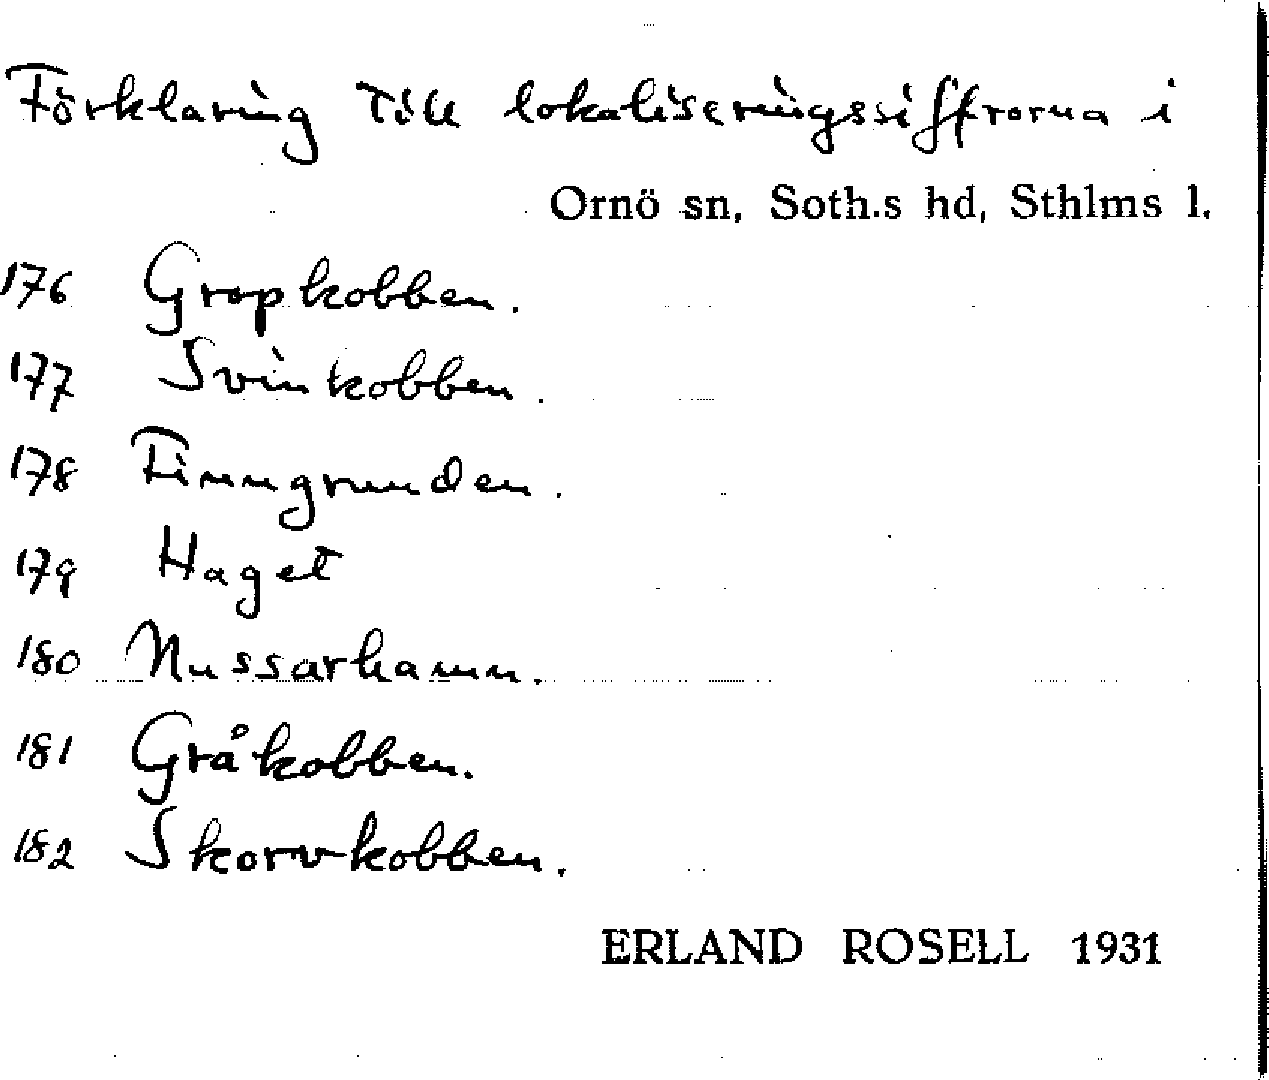 Förklaring till lokaliseringssiffrorna i
Ornö sn, Soth.s hd, Sthlms l.
176 Gropkobben.
177 Svinkobben.
178 Finngrunden.
179 Haget
180 Nussarhamn.
181 Gråkobben.
182 Skorvkobben.
ERLAND ROSELL 1931